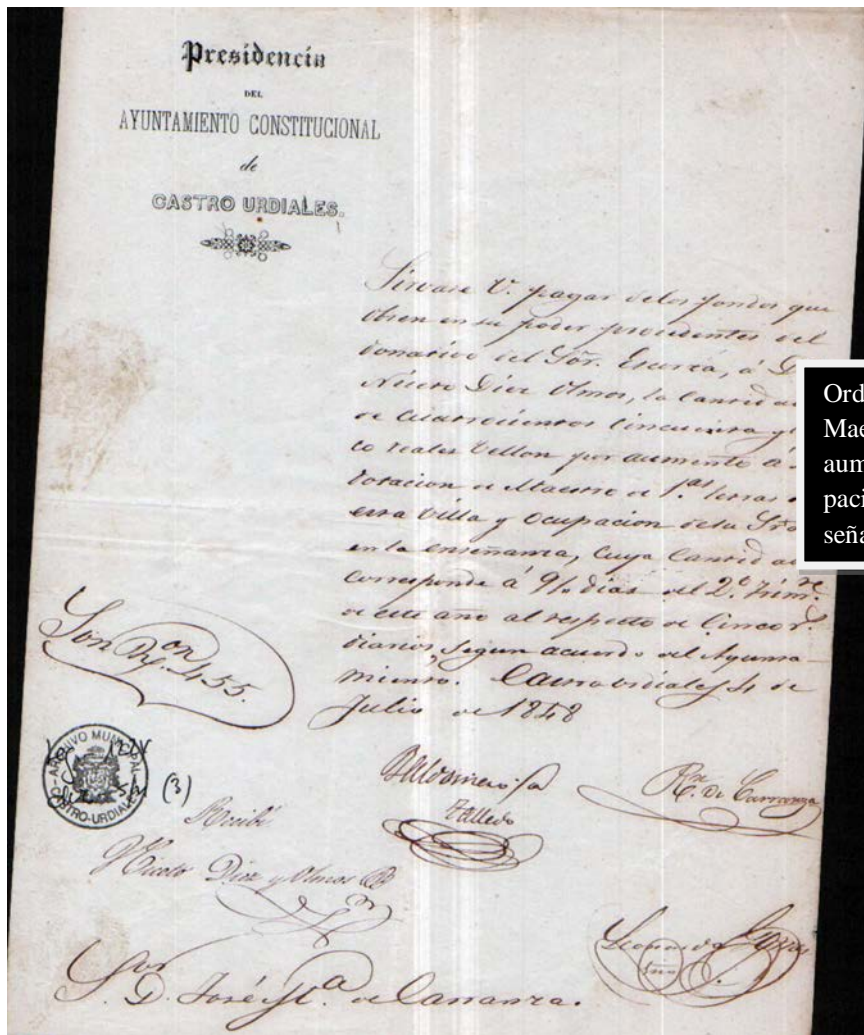 Presidencia
DEL
AYUNTAMIENTO CONSTITUCIONAL
de
CASTRO URDIALES.
Sirvase V. pagar delos fondos que
obren en su poder procedentes del
donativo del Sôr. Escarza, á D.
Diez Olmos, la Cantidad
de Cuatrocientos Cincuenta y
co reales vellon por aumento á
dotacion de Maestro de 1.as letras
esta Villa y Ocupacion dela Srô
en la enseñanza, Cuya Cantidad
Corresponde á 91 dias del 2.º trim.re
de este año al respecto de Cinco r.s
diarios, segun acuerdo del Ayunta-
miento. Castrourdiales 4 de
Julio de 1848
Son R.s on 455.
ARCHIVO MUNICIPAL
CASTRO-URDIALES
(3)
Baldomero
Talledo
R.n de Carranza
Recibí
Diez y Olmos
Leonardo
Srio
S.or D. José M.a de Carranza.
Ord
Mae
aum
paci
seña